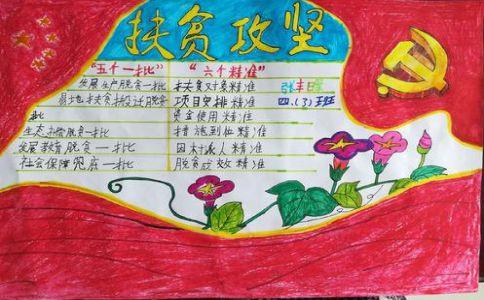 扶贫攻坚
"五个一批" "六个精准"
发展生产脱贫一批 扶贫对象精准
易地扶贫搬迁脱贫 项目安排精准
一批 资金使用精准
生态补偿脱贫一批 措施到位精准
发展教育脱贫一批 因村派人精准
社会保障兜底一批 脱贫成效精准
张丰
四.(3)班